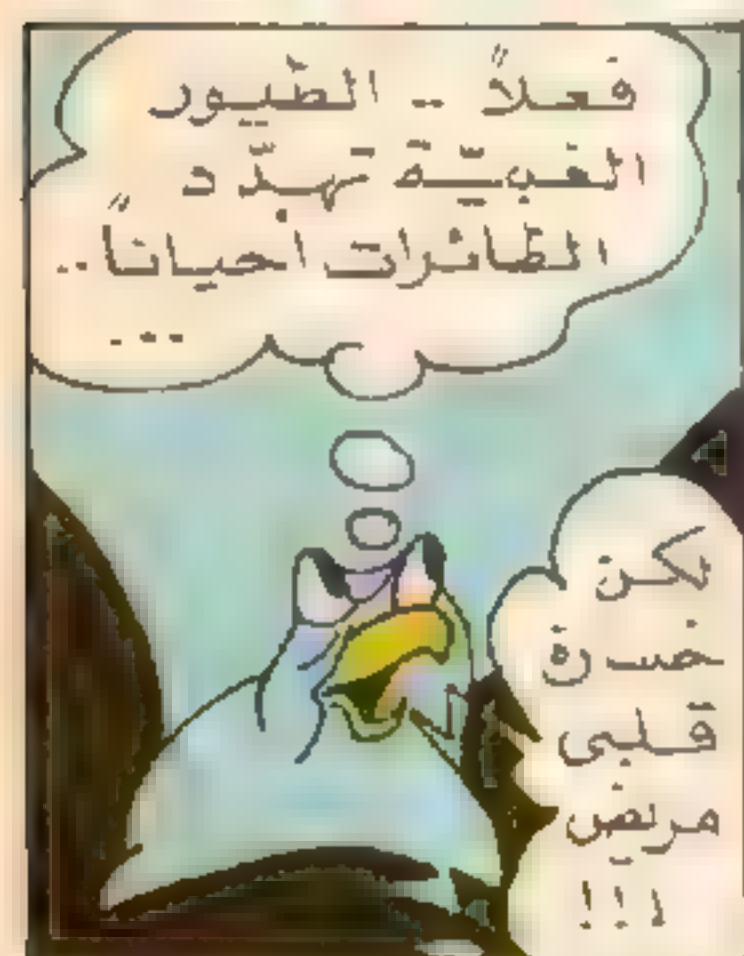 فعلاً -- الطيور
الغبيّة تهدّد
الطائرات أحياناً..
...
لكن
حسرة
قلبى
مريض
!!!